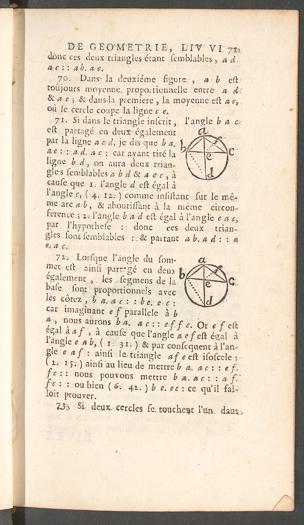 DE GEOMETRIE, LIV VI 72
donc ces deux triangles étant semblables, a d.
a c :: a b. a e.
70. Dans la deuxiéme figure, a b est
toujours moyenne proportionnelle entre a d
& a e ; & dans la premiere, la moyenne est a e,
où le cercle coupe la ligne c e.
71. Si dans le triangle inscrit, l'angle b a c
est partagé en deux également
par la ligne a e d, je dis que b a.
a e :: a d. a c : car ayant tiré la
ligne b d, on aura deux trian-
gles semblables a b d & a e c, à
cause que 1. l'angle d est égal à
l'angle c, ( 4. 12. ) comme insistant sur le mê-
me arc a b, & aboutissant à la même circon-
ference ; 2. l'angle b a d est égal à l'angle e a c,
par l'hypothese : donc ces deux trian-
gles sont semblables : & partant a b. a d :: a
e. a c.
72. Lorsque l'angle du som-
met est ainsi partagé en deux
également, les segmens de la
base sont proportionnels avec
les côtez, b a. a c :: b e. e c :
car imaginant e f parallele à b
a, nous aurons b a. a c :: e f. f c. Or e f est
égal à a f, à cause que l'angle a e f est égal à
l'angle e a b, ( 1. 31. ) & par consequent à l'an-
gle e a f : ainsi le triangle a f e est isoscele :
( 2. 15. ) ainsi au lieu de mettre b a. a c :: e f.
f c :: nous pouvons mettre b a. a c :: a f.
f c :: ou bien ( 6. 42. ) b e. e c : ce qu'il fal-
loit prouver.
73. Si deux cercles se touchent l'un dans
a
b
c
e
d
a
f
b
c
e
d